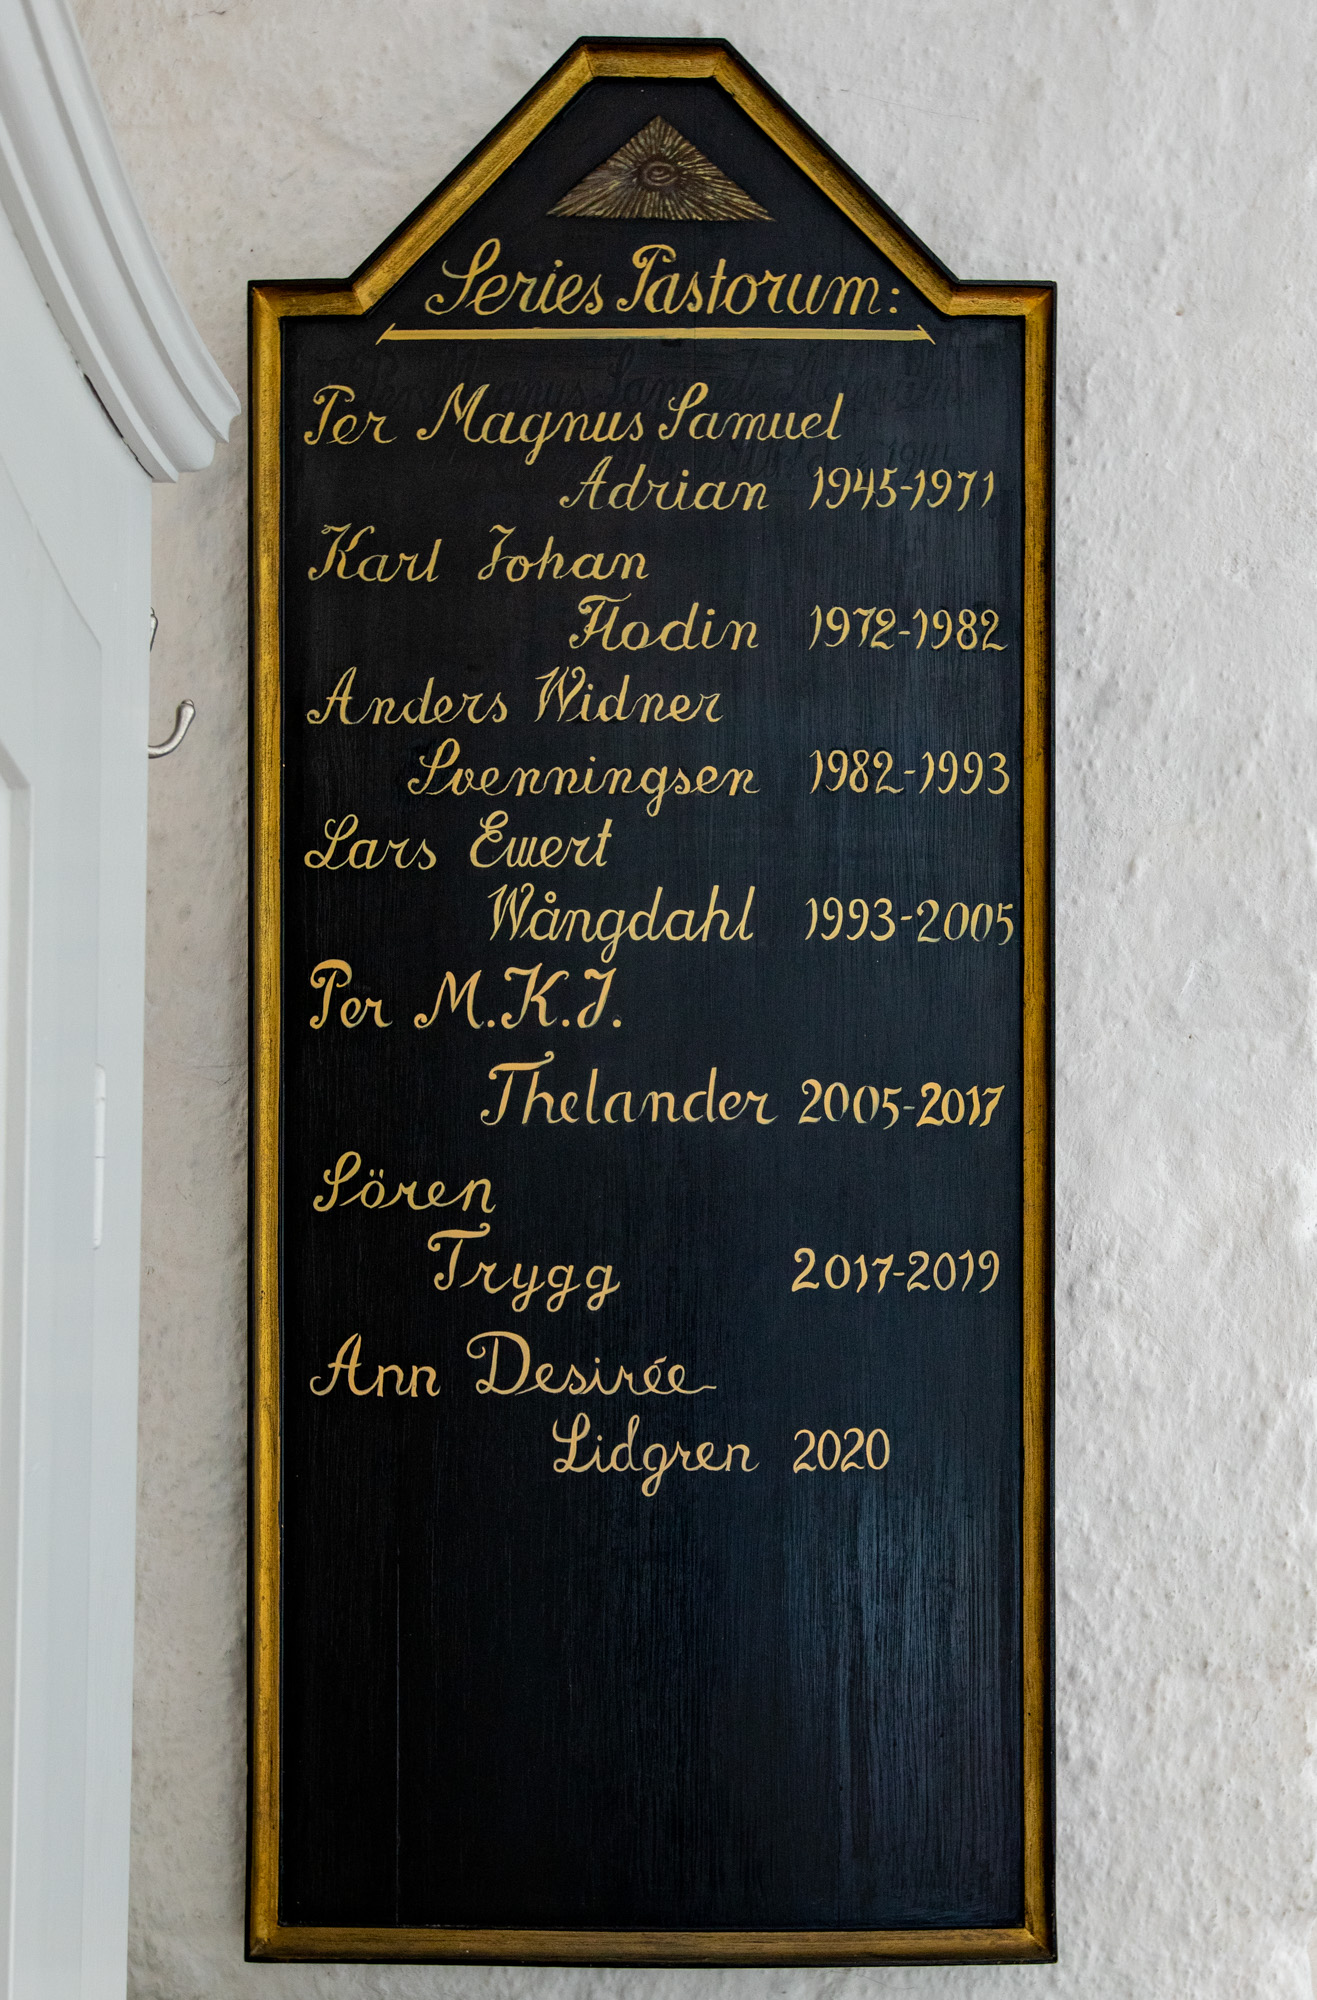 Series Pastorum:
Per Magnus Samuel
Adrian 1945-1971
Karl Johan
Hodin 1972-1982
Anders Widner
Svenningsen 1982-1993
Lars Ewert
Wångdahl 1993-2005
Per M.K.J.
Thelander 2005-2017
Sören
Trygg 2017-2019
Ann Desirée
Lidgren 2020